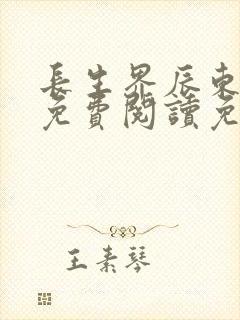 長生界辰東
免費閱讀免
王素琴